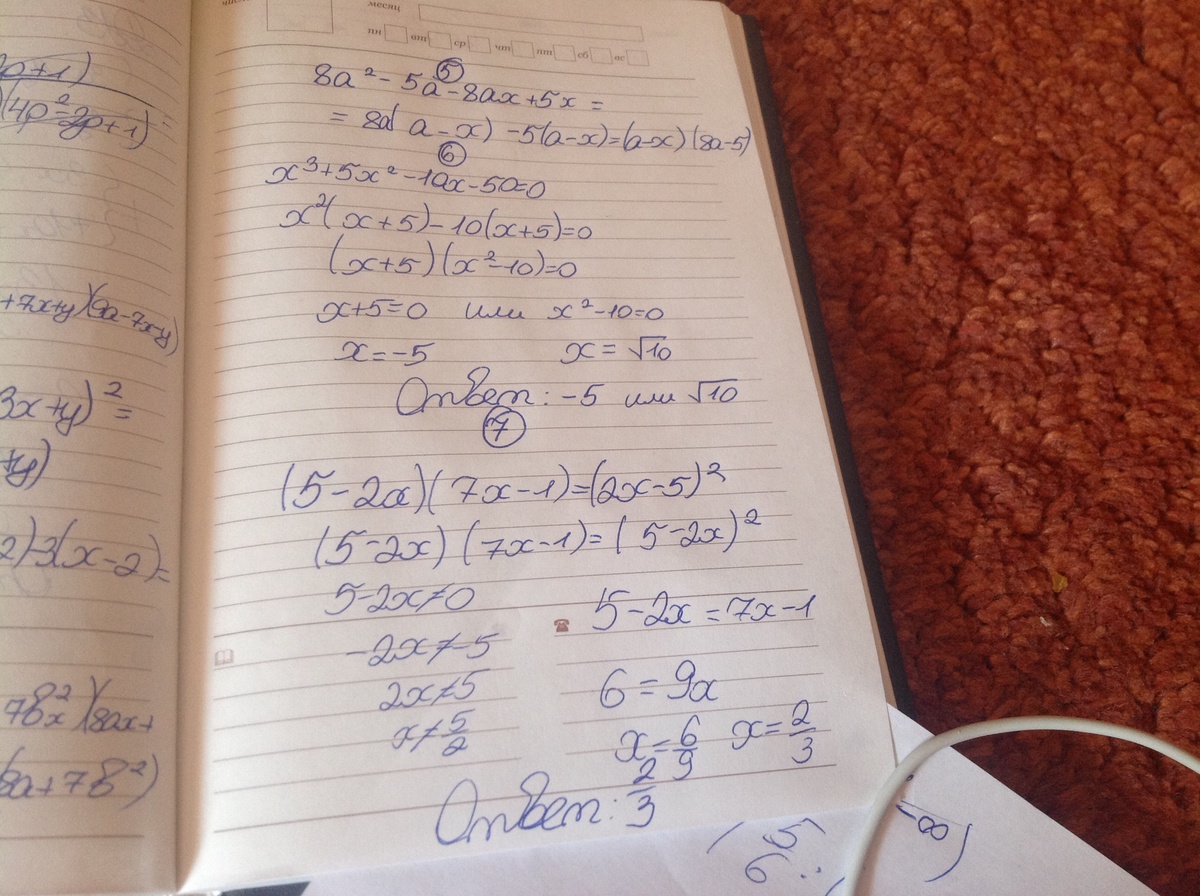 месяц
пн вт ср чт пт сб вс
2p+1)
(4p²-2p+1) =
+7x+y)(9a-7x-y)
3x+y)² =
+y)
2)-3(x-2)=
7b²x)(8ax+
8a+7b²)
⑤
8a²-5a-8ax+5x =
= 8a(a-x) -5(a-x)=(a-x)(8a-5)
⑥
x³+5x²-10x-50=0
x²(x+5)-10(x+5)=0
(x+5)(x²-10)=0
x+5=0 или x²-10=0
x=-5 x=√10
Ответ: -5 или √10
⑦
(5-2x)(7x-1)=(2x-5)²
(5-2x)(7x-1)=(5-2x)²
5-2x≠0 5-2x=7x-1
-2x≠-5
2x≠5 6=9x
x≠5/2 x=6/9 x=2/3
Ответ: 2/3
(5/6; -∞)